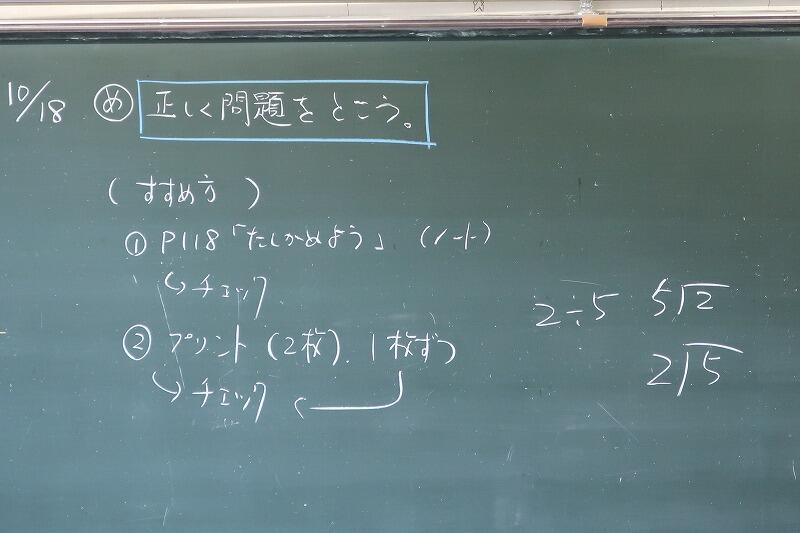 10/18 め 正しく問題をとこう。
(すすめ方)
① P118「たしかめよう」(ノート)
↳チェック
② プリント(2枚) 1枚ずつ
↳チェック
2÷5 5)2
2)5